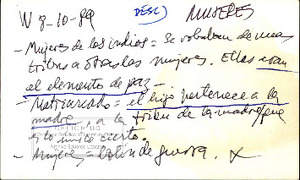 IV 8-10-89 DESC) MUJERES
- Mujeres de los indios = Se robaban de una
tribu a otra las mujeres. Ellas eran
el elemento de paz -
- Matriarcado = el hijo pertenece a la
madre, a la tribu de la madre, que
es lo más cierto.
- Mujeres = botín de guerra. X